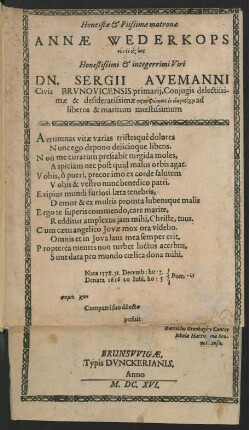 Honestæ & Piissimæ matronæ
ANNÆ WEDERKOPS
Honestissimi & integerrimi Viri
DN. SERGII AVEMANNI
Civis BRVNOVICENSIS primarij, Conjugis delectissi-
mæ & desideratissimæ ad
liberos & maritum mœstissimum
Aerumnas vitæ varias tristesque dolores
Nunc ego depono deliciisque libens.
Non me curarum presfabit turgida moles,
Aspiciam nec post quid malus orbis agat.
Vobis, ô pueri, precor imo ex corde salutem
Vobis & vestro nunc benedico patri.
Eripiat mundi furiis læta tenebris,
Demat & ex multis promta lubensque malis
Ergo te superis commendo, care marite,
Redditur amplexus jam mihi, Christe, tuus,
Cum cœtu angelico Jovæ mox ora videbo.
Omnis et in Jova laus mea semper erit,
Propterea mentes non turbet luctus acerbus,
Sunt data pro mundo cœlica dona mihi.
Nata 1578. 31. Decemb: ho: 5.
Denata 1616 20 Julii, ho: 5
Pom.
Compatri suo dilecto
posuit
BRUNSVVIGÆ,
Typis DVNCKERIANIS.
Anno
M. DC. XVI.